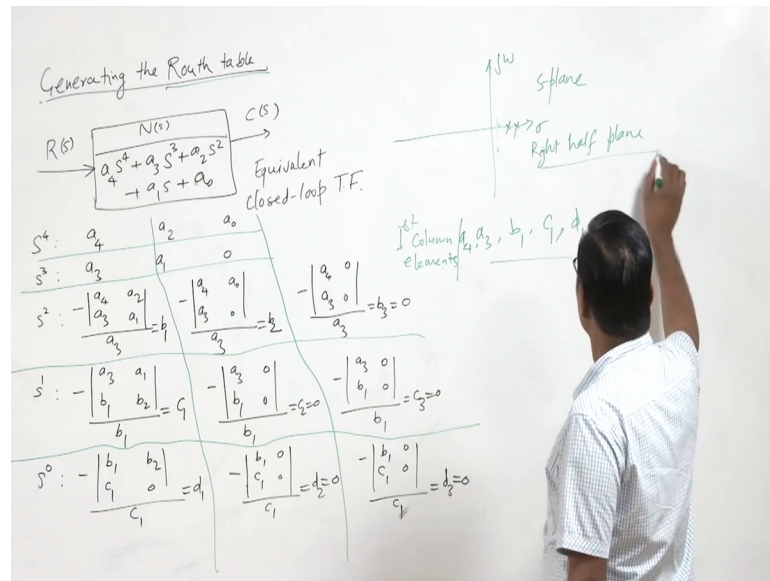 Generating the Routh table
R(s) N(s) C(s)
a4s^4 + a3s^3 + a2s^2
+ a1s + a0
Equivalent
closed-loop T.F.
s^4: a4 a2 a0
s^3: a3 a1 0
s^2: -|a4 a2; a3 a1|/a3 = b1 -|a4 a0; a3 0|/a3 = b2 -|a4 0; a3 0|/a3 = b3 = 0
s^1: -|a3 a1; b1 b2|/b1 = c1 -|a3 0; b1 0|/b1 = c2 = 0 -|a3 0; b1 0|/b1 = c3 = 0
s^0: -|b1 b2; c1 0|/c1 = d1 -|b1 0; c1 0|/c1 = d2 = 0 -|b1 0; c1 0|/c1 = d3 = 0
jω
s-plane
xx→σ
Right half plane
Ist Column
elements
a4, a3, b1, c1, d1